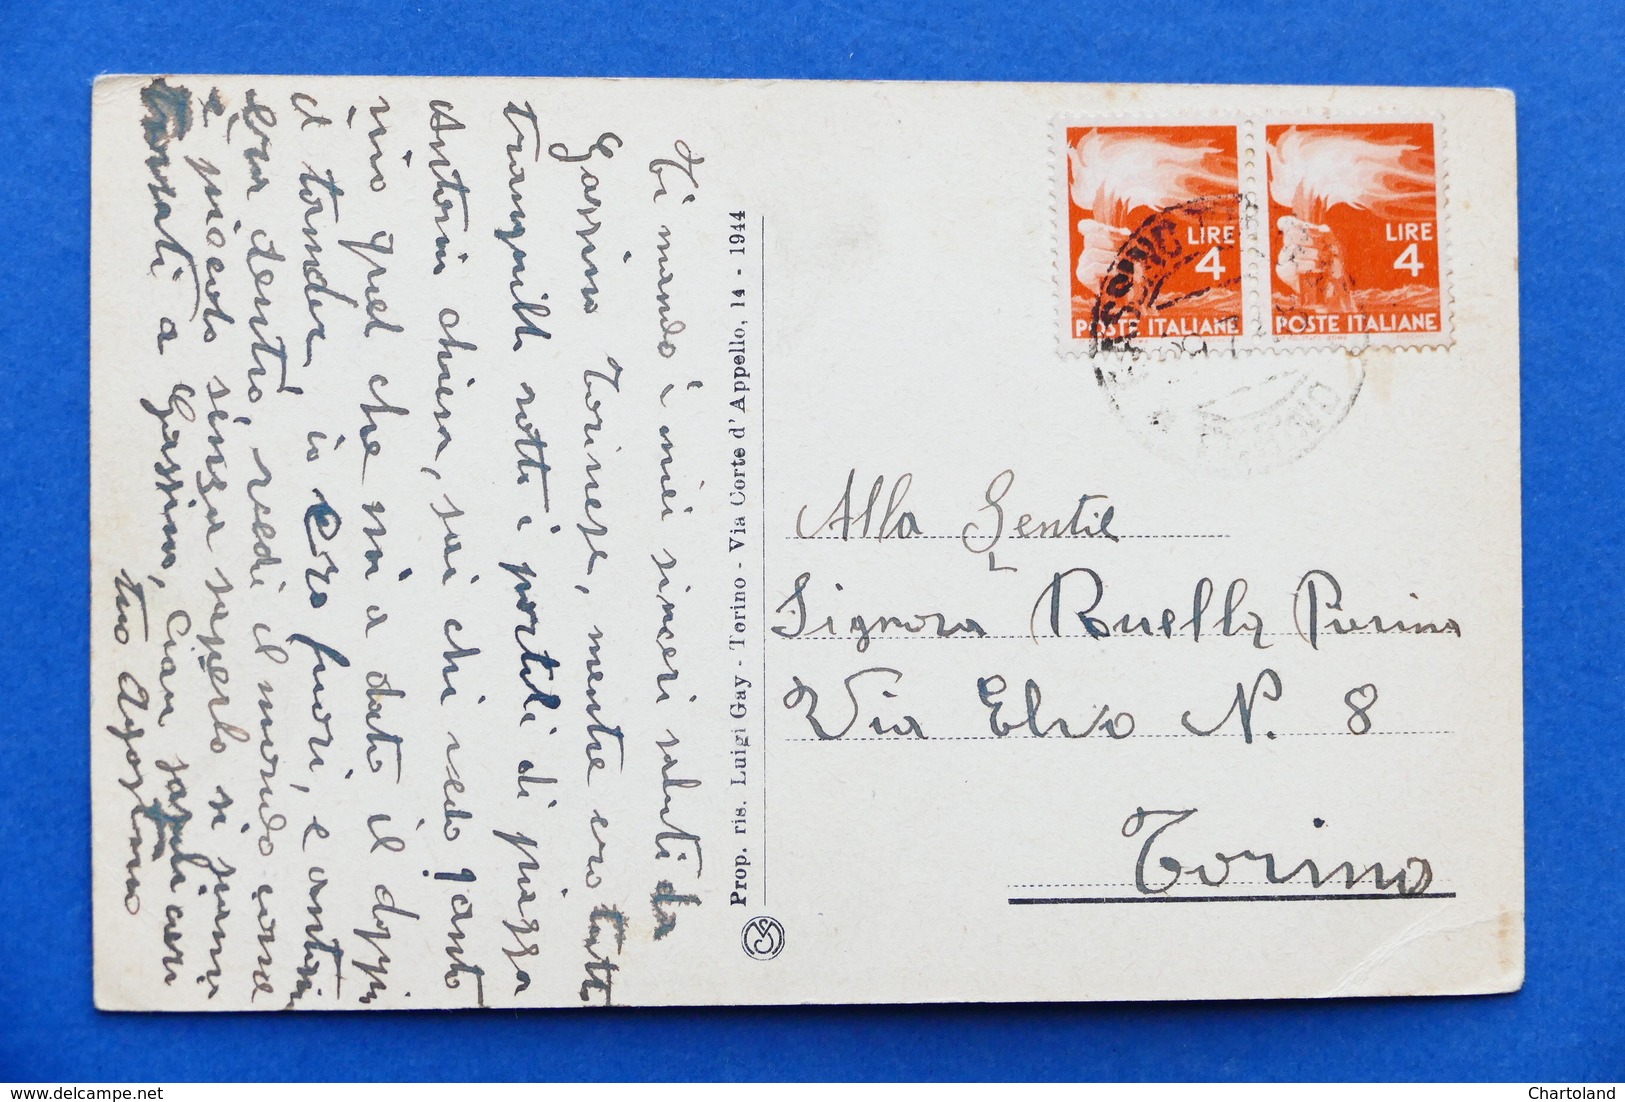 Ti mando i miei sinceri saluti da
Gassino Torinese, mentre ero tutto
tranquillo sotto i portili di piazza
Antonin chiesa, sai chi vedo janto
nio quel che mi a dato il
d tornder, io ero fuori, e antonin
era dentro, vedi il mondo come
è piccolo sensa saperlo si siamo
trovati a Gassino, Ciau
tuo Agostino
Prop. ris. Luigi Gay - Torino - Via Corte d'Appello, 14 - 1944
LIRE
4
POSTE ITALIANE
LIRE
4
POSTE ITALIANE
Alla Gentile
Signora Ruella Pierina
Via Elvo N. 8
Torino
Chartoland